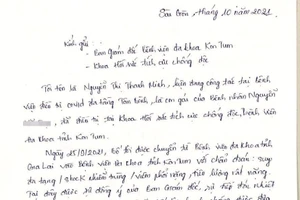 Sài Gòn, tháng 10 năm 2021
Kính gửi:
- Ban Giám đốc Bệnh viện đa khoa Kon Tum
- Khoa Hồi sức tích cực chống độc.
Tôi tên là Nguyễn Thị Thanh Minh, hiện đang công tác tại Bệnh
viện điều trị covid đa tầng Tân Bình, là con gái của Bệnh nhân Nguyễn
đã điều trị tại Khoa Hồi sức tích cực chống độc, Bệnh viện
đa khoa tỉnh Kon Tum.
Ngày 25/9/2021, Bố tôi được chuyển từ Bệnh viện đa khoa tỉnh
Gia Lai về Bệnh viện đa khoa tỉnh Kon Tum với chẩn đoán: suy
đa tạng / shock nhiễm trùng / viêm phổi nặng, tiên lượng rất nặng.
Tại đây được sự đồng ý của Ban Giám đốc, sự